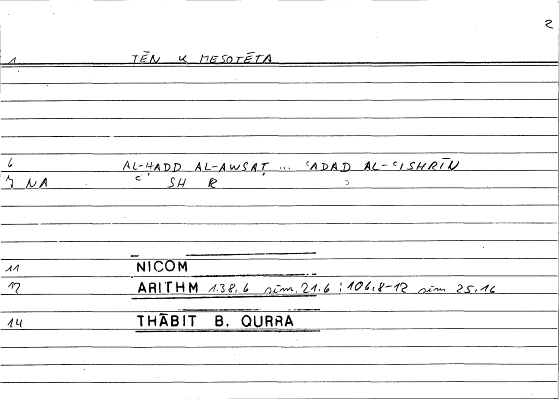 2
1 TĒN K MESOTĒTA
6 AL-HADD AL-AWSAṬ ... ʿADAD AL-ʿISHRĪN
7 NA SH R
11 NICOM
12 ARITHM 138.6 sim. 21.6; 106.8-12 sim 25.16
14 THĀBIT B. QURRA